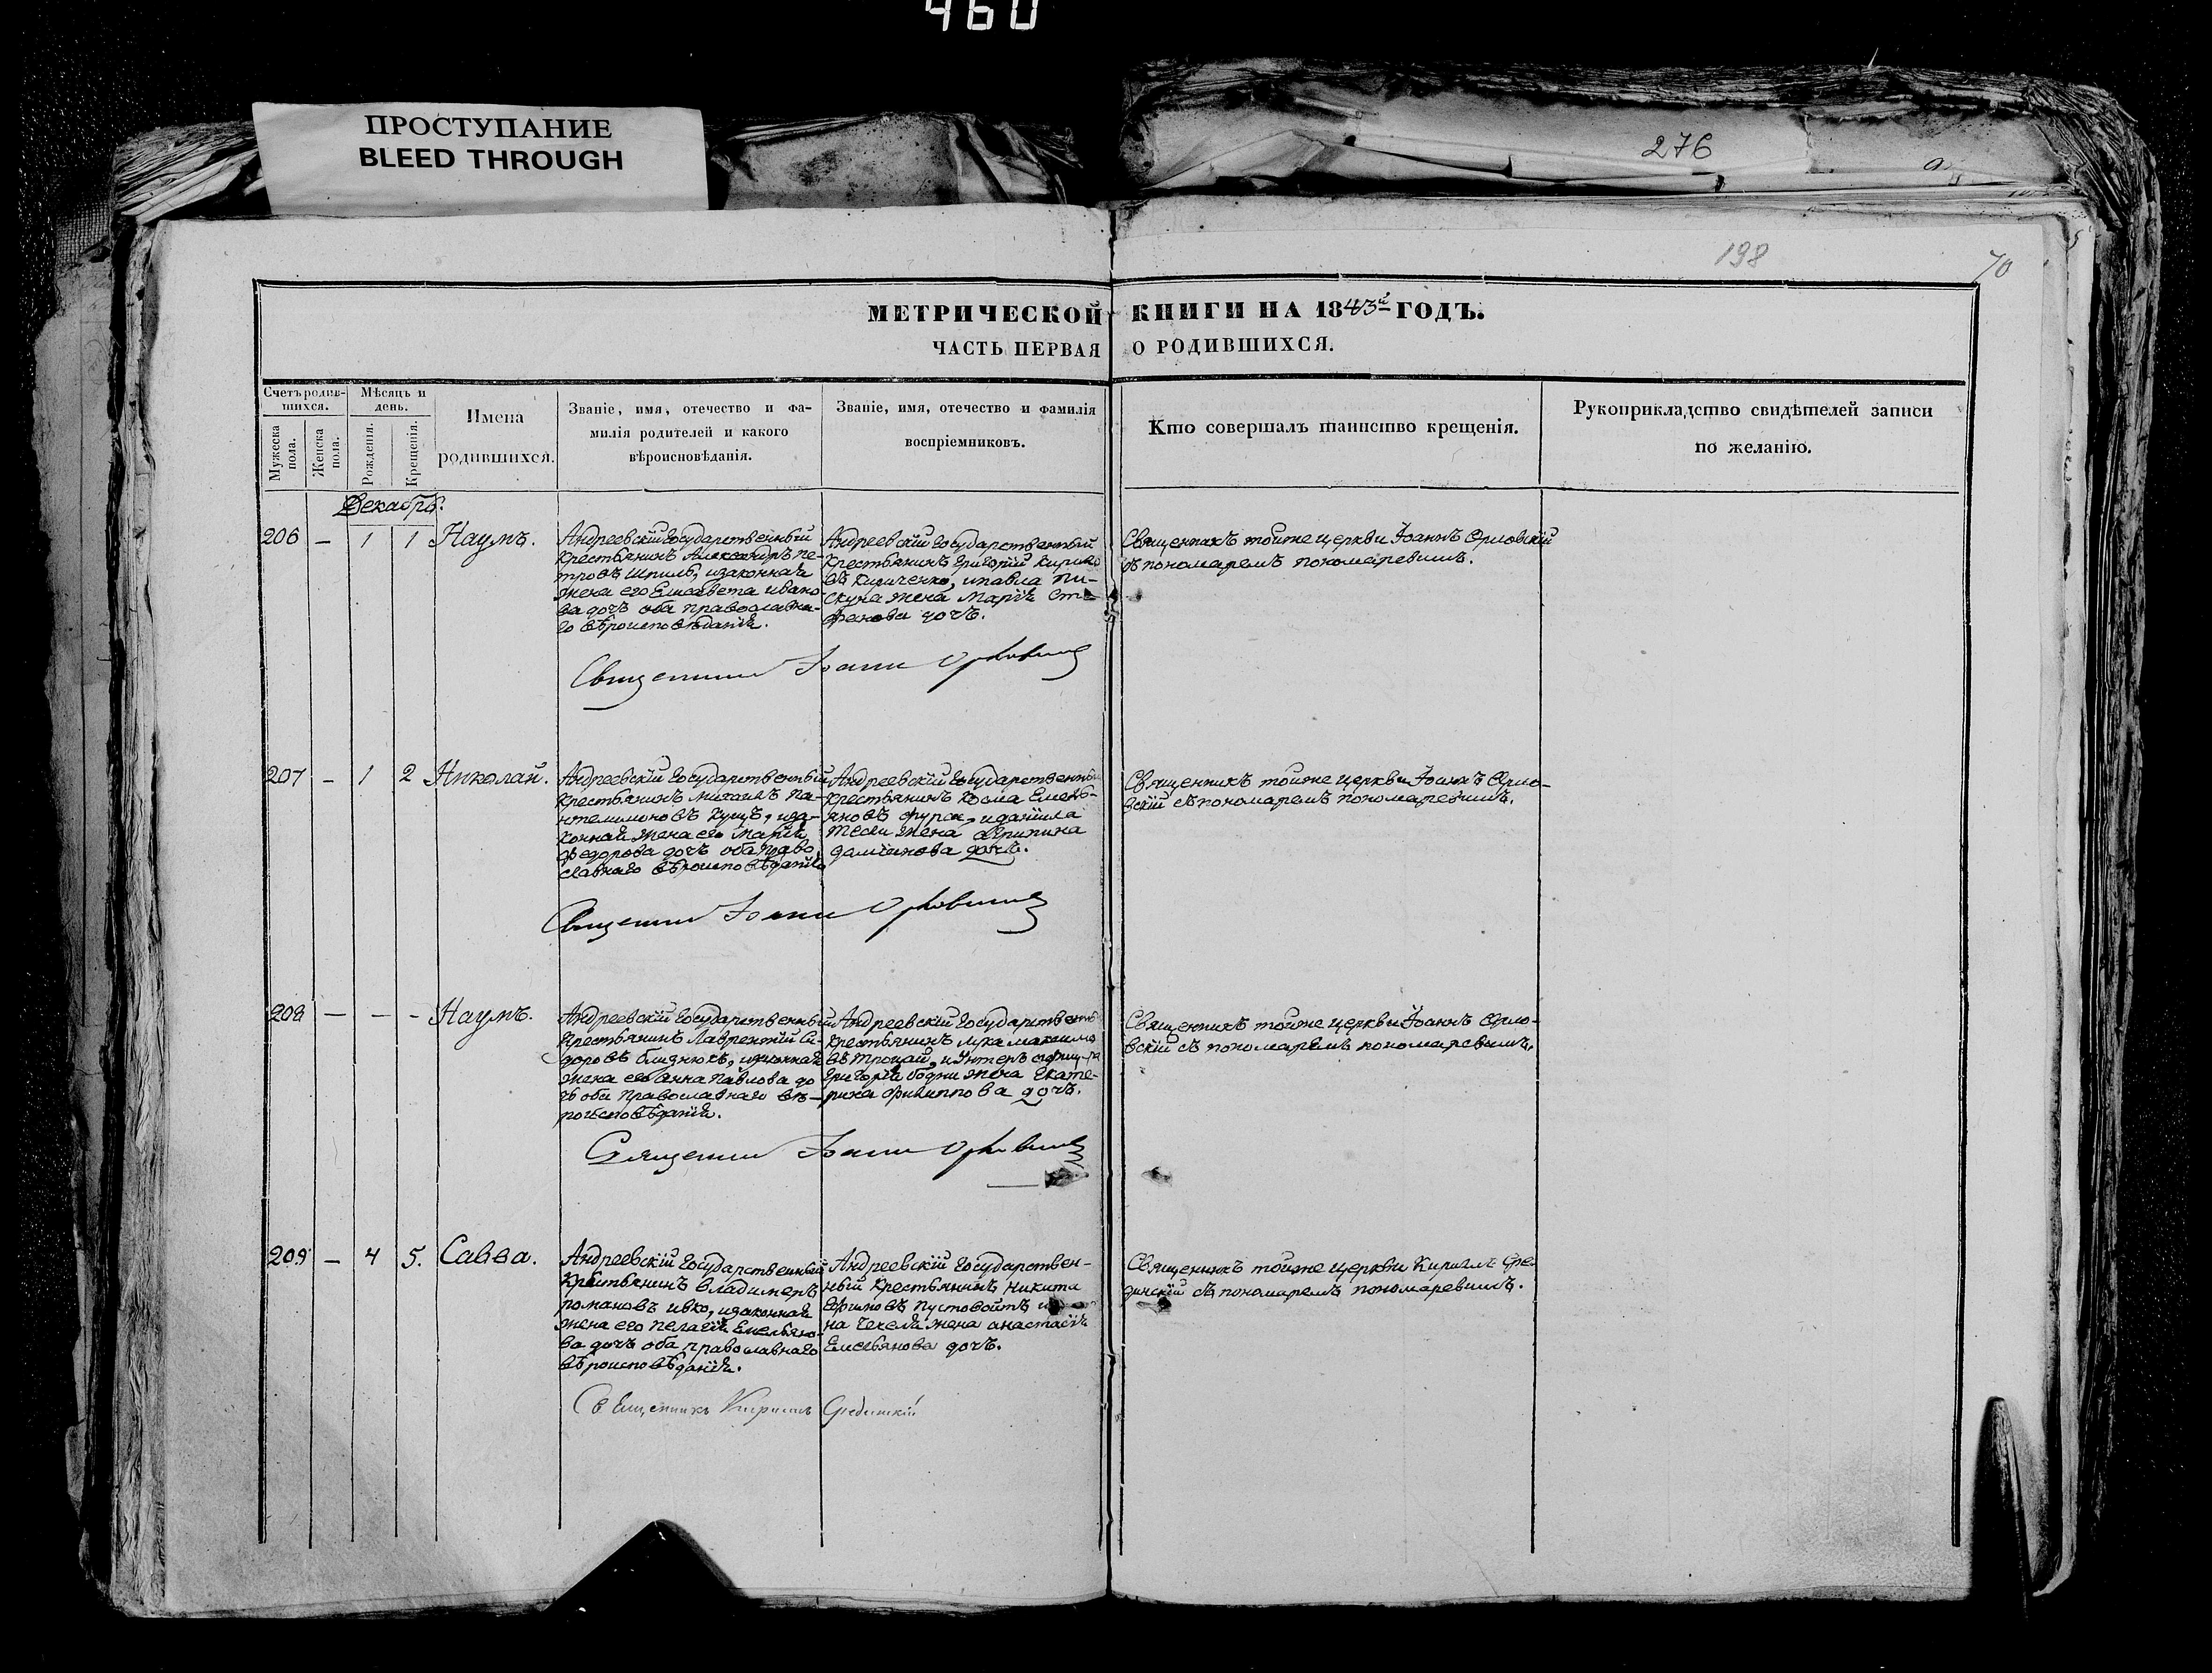 460
ПРОСТУПАНИЕ
BLEED THROUGH
276
198
70
МЕТРИЧЕСКОЙ КНИГИ НА 1843й ГОДЪ.
ЧАСТЬ ПЕРВАЯ О РОДИВШИХСЯ.
Счетъ родив-
шихся.
Мужеска
пола.
Женска
пола.
Мѣсяцъ и
день.
Рожденія.
Крещенія.
Имена
родившихся.
Званіе, имя, отечество и фа-
милія родителей и какого
вѣроисповѣданія.
Званіе, имя, отечество и фамилія
воспріемниковъ.
Кто совершалъ таинство крещенія.
Рукоприкладство свидѣтелей записи
по желанію.
Декабрь.
206 — 1 1 Наумъ.
Андреевскій Государственный
Крестьянинъ Александръ Пе-
тровъ Шпиль, изаконная
жена его Елисавета Ивано
ва дочь оба православна-
го вѣроисповѣданія.
Андреевскій Государственный
Крестьянинъ Григорій Кирило
въ Кириченко, и Павла Пи-
скуна жена Марія Сте
фанова дочь.
Священникъ тойже церкви Іоаннъ Орловскій
съ пономаремъ Пономаревимъ.
Священникъ Іоаннъ Орловскій
207 — 1 2 Николай.
Андреевскій Государственный
Крестьянинъ Михаилъ Па-
нтелимоновъ Куцъ, иза-
конная жена его Марія
Федорова дочь оба право
славнаго вѣроисповѣданія
Андреевскій Государственный
Крестьянинъ Козма Емель-
яновъ Фурса, и Даніила
жена
дочь.
Священникъ тойже церкви Іоаннъ Орло-
вскій съ пономаремъ Пономаревимъ.
Священникъ Іоаннъ Орловскій
208 — — - Наумъ.
Андреевскій Государственный
Крестьянинъ Лаврентій Си-
доровъ Близнюкъ, изаконная
жена его Анна Павлова до
чь оба православнаго вѣ-
роисповѣданія.
Андреевскій Государственный
Крестьянинъ Лука Максимо
въ Троцай, и Унтеръ офицера
Григорія жена Екате-
рина Филиппова дочь.
Священникъ тойже церкви Іоаннъ Орло-
вскій съ пономаремъ Пономаревимъ.
Священникъ Іоаннъ Орловскій
209 — 4 5. Савва.
Андреевскій Государственный
Крестьянинъ Владимеръ
Романовъ Ивко, изаконная
жена его Пелагія Емельяно-
ва дочь оба православнаго
вѣроисповѣданія.
Андреевскій Государствен-
ный Крестьянинъ Никита
Ефимовъ Пустовойтъ
на жена Анастасія
Емельянова дочь.
Священникъ тойже церкви Кириллъ Сре-
динскій съ пономаремъ Пономаревимъ.
Священникъ Кириллъ Срединскій